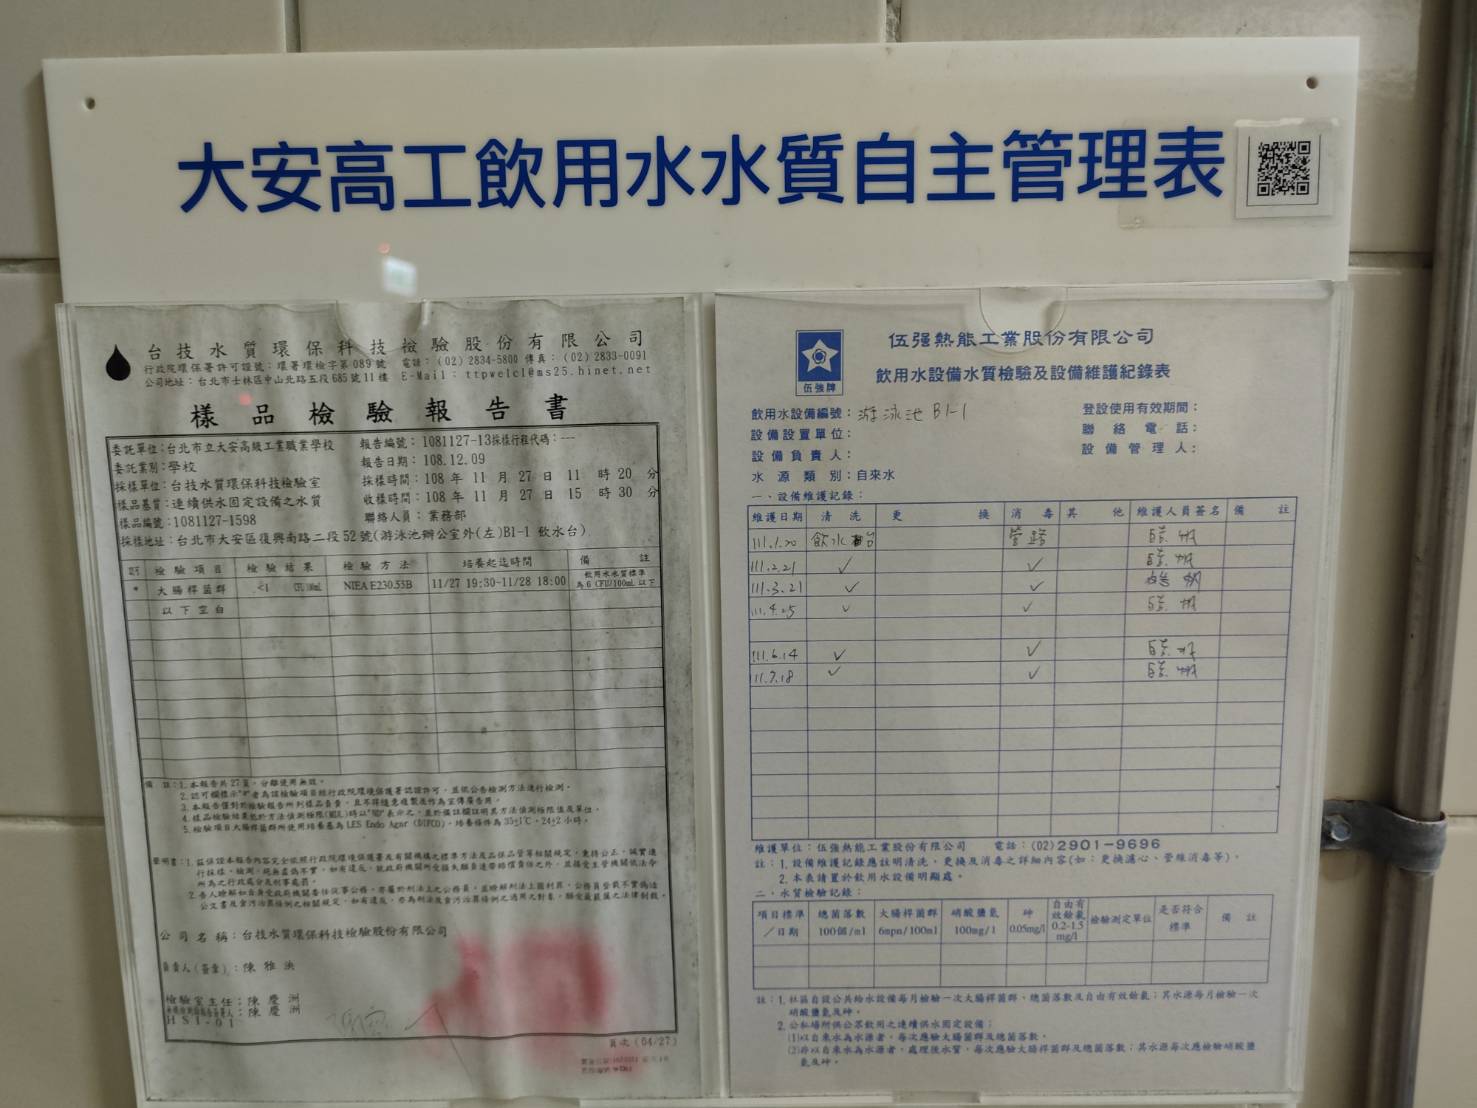 大安高工飲用水水質自主管理表
台技水質環保科技檢驗股份有限公司
行政院環保署許可證號：環署環檢字第089號 電話：(02) 2834-5800 傳真：(02) 2833-0091
公司地址：台北市士林區中山北路五段685號11樓 E-Mail：ttpwelcl@ms25.hinet.net
樣品檢驗報告書
委託單位：台北市立大安高級工業職業學校 報告編號：1081127-13採樣行程代碼：---
委託業別：學校 報告日期：108.12.09
採樣單位：台技水質環保科技檢驗室 採樣時間：108 年 11 月 27 日 11 時 20 分
樣品基質：連續供水固定設備之水質 收樣時間：108 年 11 月 27 日 15 時 30 分
樣品編號：1081127-1598 聯絡人員：業務部
採樣地址：台北市大安區復興南路二段52號(游泳池辦公室外(左)B1-1 飲水台)
檢驗項目 檢驗結果 檢驗方法 培養起迄時間 備註
* 大腸桿菌群 <1 CFU/100mL NIEA E230.55B 11/27 19:30~11/28 18:00 飲用水水質標準
為6 CFU/100mL 以下
以下空白
備 註：1.本報告共27頁，分離使用無效。
3.本報告僅對於檢驗報告所列樣品負責，且不得隨意複製及作為宣傳廣告用。
4.樣品檢驗結果低於方法偵測極限(MDL)時以"ND"表示之，並於備註欄註明其方法偵測極限值及單位。
5.檢驗項目大腸桿菌群所使用培養基為 LES Endo Agar (DIFCO)，培養條件為 35±1℃，24±2小時。
公司名稱：台技水質環保科技檢驗股份有限公司
負責人(簽章)：陳雅泱
檢驗室主任：陳慶洲
陳慶洲
HSI-01
頁次 (04/27)
伍強牌
伍强熱能工業股份有限公司
飲用水設備水質檢驗及設備維護紀錄表
飲用水設備編號：游泳池 B1-1 登設使用有效期間：
設備設置單位： 聯絡電話：
設備負責人： 設備管理人：
水源類別：自來水
一、設備維護記錄：
維護日期 清洗 更換 消毒 其他 維護人員簽名 備註
111.1.20 飲水台 管路
111.2.21 ✓ ✓
111.3.21 ✓ ✓
111.4.25 ✓ ✓
111.6.14 ✓ ✓
111.7.18 ✓ ✓
維護單位：伍強熱能工業股份有限公司 電話：(02)2901-9696
註：1.設備維護記錄應註明清洗、更換及消毒之詳細內容(如：更換濾心、管線消毒等)。
2.本表請置於飲用水設備明顯處。
二、水質檢驗記錄：
項目標準／日期 總菌落數 100個/ml 大腸桿菌群 6mpn/100ml 硝酸鹽氮 100mg/l 砷 0.05mg/l 自由有效餘氯 0.2-1.5 mg/l 檢驗測定單位 是否符合標準 備註
註：1.社區自設公共給水設備每月檢驗一次大腸桿菌群、總菌落數及自由有效餘氯；其水源每月檢驗一次
硝酸鹽氮及砷。
2.公私場所供公眾飲用之連續供水固定設備：
(1)以自來水為水源者，每次應驗大腸桿菌群及總菌落數。
(2)非以自來水為水源者，處理後水質，每次應驗大腸桿菌群及總菌落數；其水源每次應檢驗硝酸鹽
氮及砷。